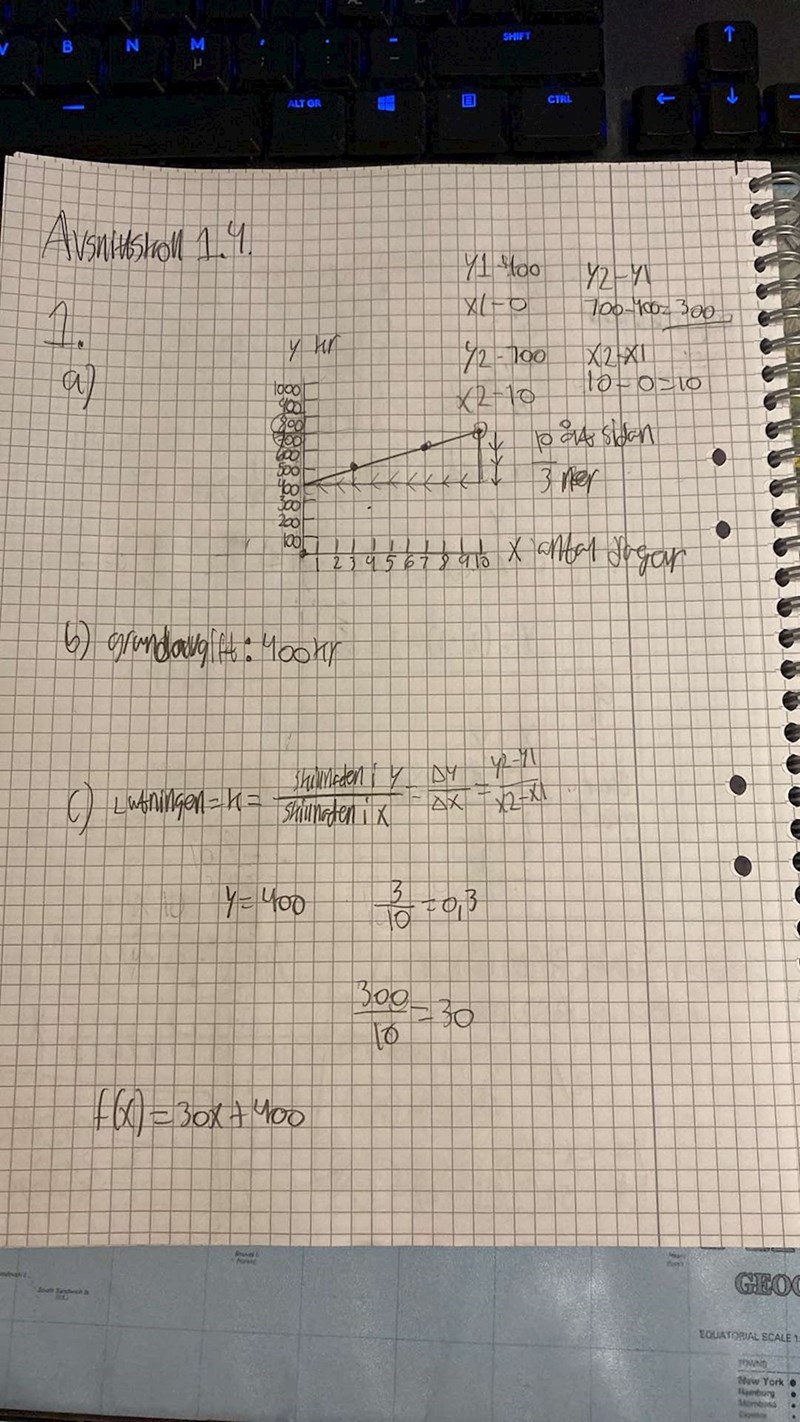 V B N M ; : - SHIFT
µ , .
ALT GR CTRL
Avsnittskoll 1.4.
1.
a)
y kr
1000
900
800
700
600
500
400
300
200
100
1 2 3 4 5 6 7 8 9 10 X antal dagar
y1-400
x1-0
y2-700
x2-10
y2-y1
700-400=300
x2-x1
10-0=10
10 åt sidan
3 ner
b) grundavgift: 400kr
c) Lutningen = k = skillnaden i y / skillnaden i x = Δy/Δx = y2-y1/x2-x1
y=400 3/10 = 0,3
300/10 = 30
f(x)=30x+400
GEOG
EQUATORIAL SCALE 1:
TOWNS
New York
Hamburg
Mombasa